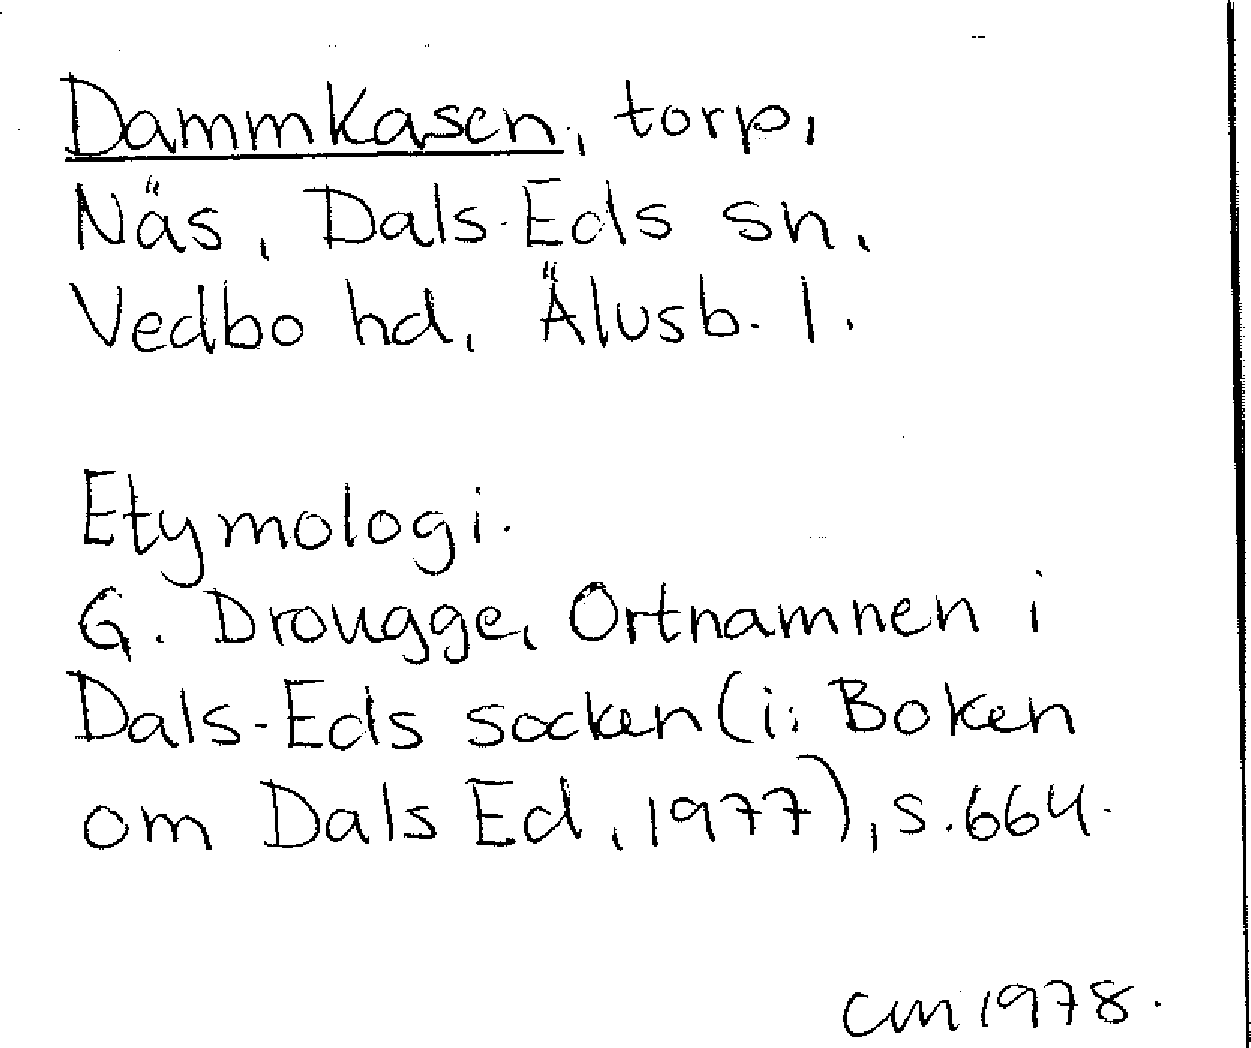 Dammkasen, torp,
Näs, Dals-Eds sn,
Vedbo hd, Älvsb. l.
Etymologi.
G. Drougge, Ortnamnen i
Dals-Eds socken (i: Boken
om Dals Ed, 1977), s. 664.
CM 1978.